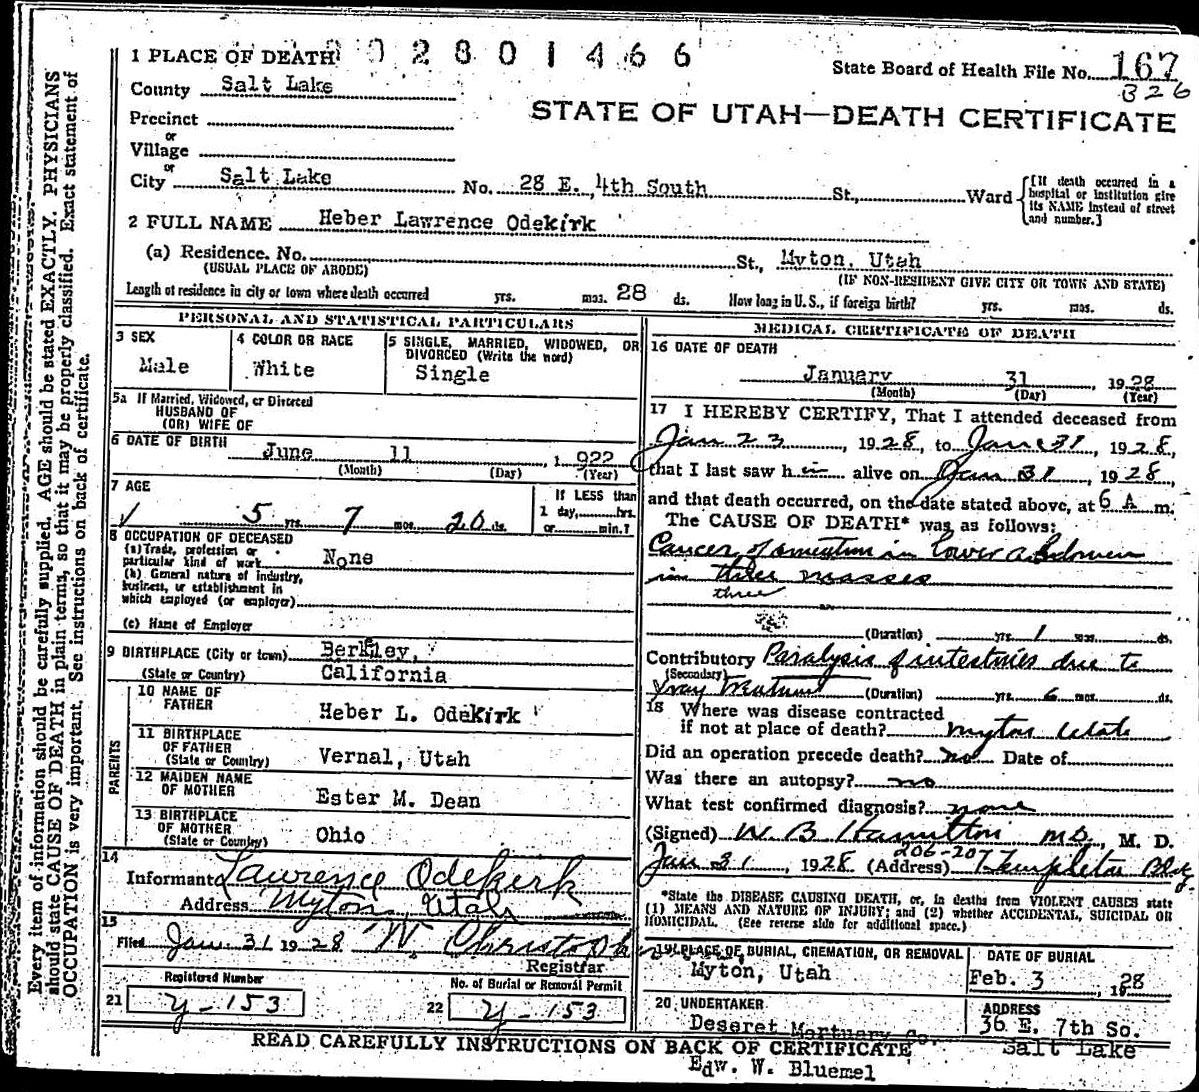 Every item of information should be carefully supplied. AGE should be stated EXACTLY. PHYSICIANS
should state CAUSE OF DEATH in plain terms, so that it may be properly classified. Exact statement of
OCCUPATION is very important. See instructions on back of certificate.
1 PLACE OF DEATH 02801466
State Board of Health File No. 167
326
County Salt Lake
STATE OF UTAH—DEATH CERTIFICATE
Precinct
or
Village
or
City Salt Lake No. 28 E. 4th South St., Ward
[If death occurred in a
hospital or institution give
its NAME instead of street
and number.]
2 FULL NAME Heber Lawrence Odekirk
(a) Residence. No. St., Myton, Utah
(USUAL PLACE OF ABODE) (IF NON-RESIDENT GIVE CITY OR TOWN AND STATE)
Length of residence in city or town where death occurred yrs. mos. 28 ds. How long in U.S., if foreign birth? yrs. mos. ds.
PERSONAL AND STATISTICAL PARTICULARS
3 SEX
Male
4 COLOR OR RACE
White
5 SINGLE, MARRIED, WIDOWED, OR
DIVORCED (Write the word)
Single
5a If Married, Widowed, or Divorced
HUSBAND OF
(OR) WIFE OF
6 DATE OF BIRTH June 11, 1922
(Month) (Day) (Year)
7 AGE
5 yrs. 7 mos. 20 ds.
If LESS than
1 day, hrs.
or min.?
8 OCCUPATION OF DECEASED
(a) Trade, profession or
particular kind of work None
(b) General nature of industry,
business, or establishment in
which employed (or employer)
(c) Name of Employer
9 BIRTHPLACE (City or town) Berkley,
(State or Country) California
PARENTS
10 NAME OF
FATHER Heber L. Odekirk
11 BIRTHPLACE
OF FATHER
(State or Country) Vernal, Utah
12 MAIDEN NAME
OF MOTHER Ester M. Dean
13 BIRTHPLACE
OF MOTHER
(State or Country) Ohio
14
Informant Lawrence Odekirk
Address Myton, Utah
15
Filed Jan 31 1928 W. Christoph
Registrar
Registered Number
21 y-153
No. of Burial or Removal Permit
22 y-153
MEDICAL CERTIFICATE OF DEATH
16 DATE OF DEATH
January 31, 1928
(Month) (Day) (Year)
17 I HEREBY CERTIFY, That I attended deceased from
Jan 23, 1928, to Jan 31, 1928,
that I last saw him alive on Jan 31, 1928,
and that death occurred, on the date stated above, at 6 A m.
The CAUSE OF DEATH* was as follows:
Cancer of omentum in lower abdomen
in three masses
three
(Duration) yrs. 1 mos. ds.
Contributory Paralysis of intestines due to
(Secondary)
Xray (Duration) yrs. 6 mos. ds.
18 Where was disease contracted
if not at place of death? Myton Utah
Did an operation precede death? no Date of
Was there an autopsy? no
What test confirmed diagnosis? none
(Signed) W B Hamilton MD, M. D.
206-207
Jan 31, 1928 (Address) Templeton Bldg
*State the DISEASE CAUSING DEATH, or, in deaths from VIOLENT CAUSES state
(1) MEANS AND NATURE OF INJURY; and (2) whether ACCIDENTAL, SUICIDAL OR
HOMICIDAL. (See reverse side for additional space.)
19 PLACE OF BURIAL, CREMATION, OR REMOVAL
Myton, Utah
DATE OF BURIAL
Feb. 3, 1928
20 UNDERTAKER
Deseret Mortuary Co.
ADDRESS
36 E. 7th So.
Salt Lake
READ CAREFULLY INSTRUCTIONS ON BACK OF CERTIFICATE
Edw. W. Bluemel